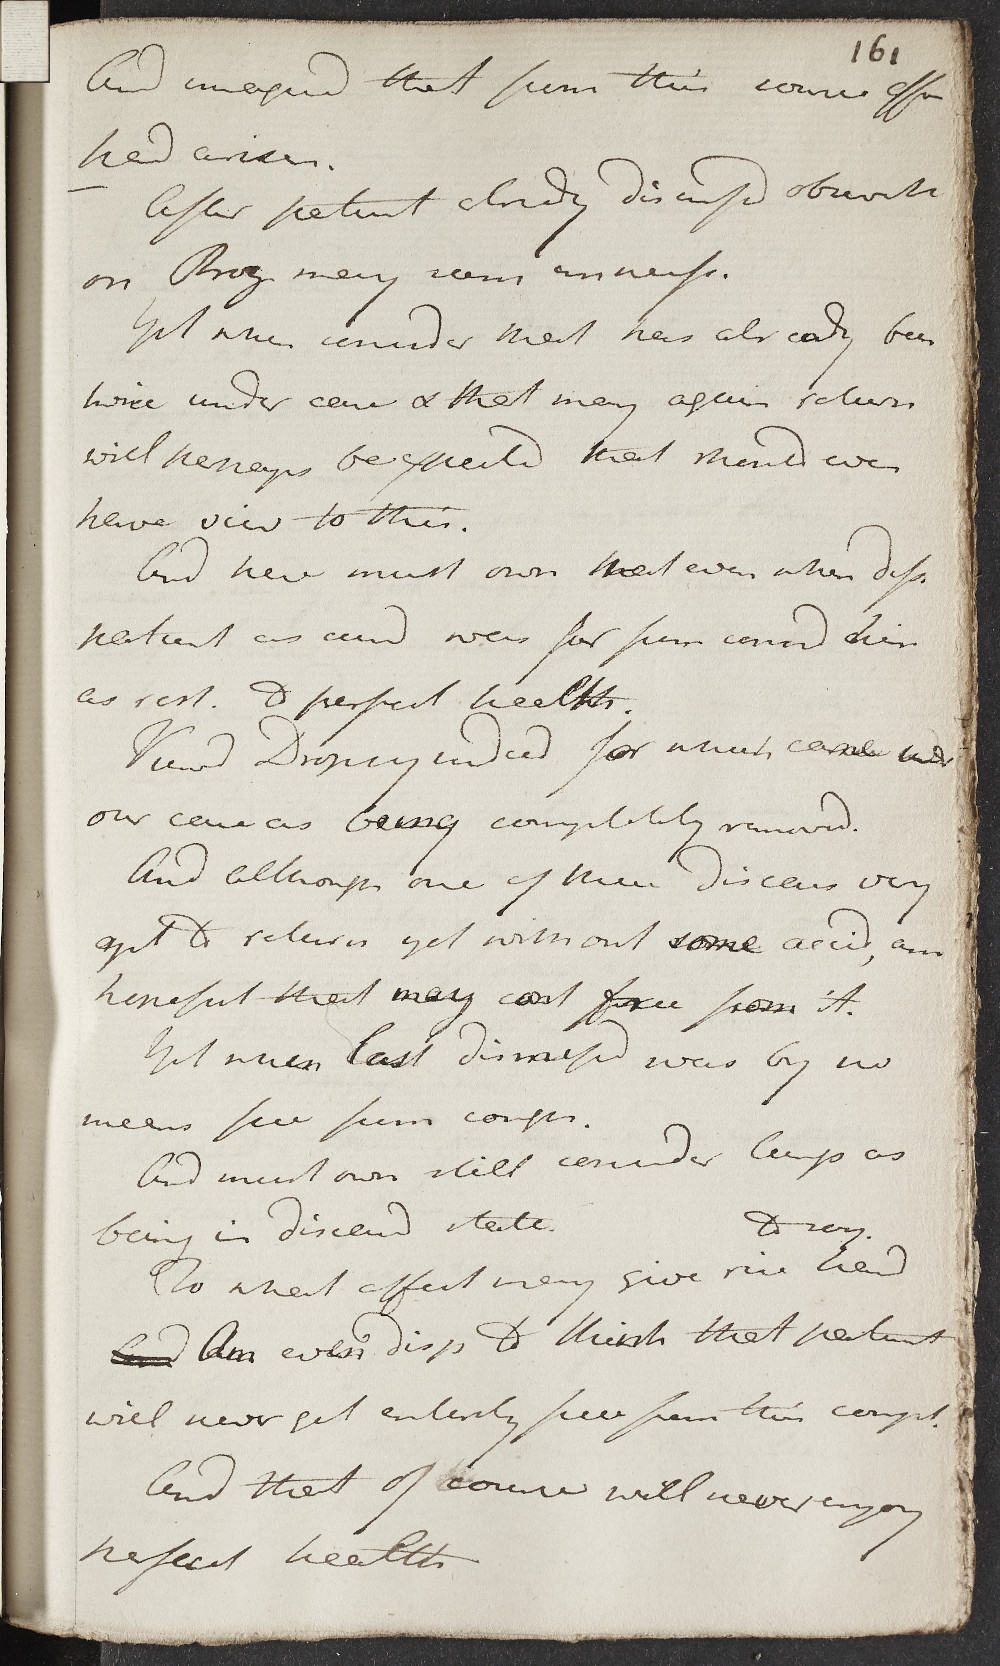 161
And imagind that from this source affn
had arisen.
After patient already dismissd observatn
on Prog. may seem unnecess.
Yet when consider that has already been
twice under care & that may again return
will perhaps be expected that should even
have view to this.
And here must own that even when diss.
patient as curd was far from considr him
as rest. to perfect health.
Viewd Dropsy indeed for which came under
our care as being completely removd.
And although one of those diseases very
apt to return yet without some accid, am
hopeful that may cont free from it.
Yet when last dismissd was by no
means free from cough.
And must own still consider lungs as
being in diseasd state.
To what effect may give rise hard to say.
Am even disp to think that patient
will never get entirely free from this compt.
And that of course will never enjoy
perfect health